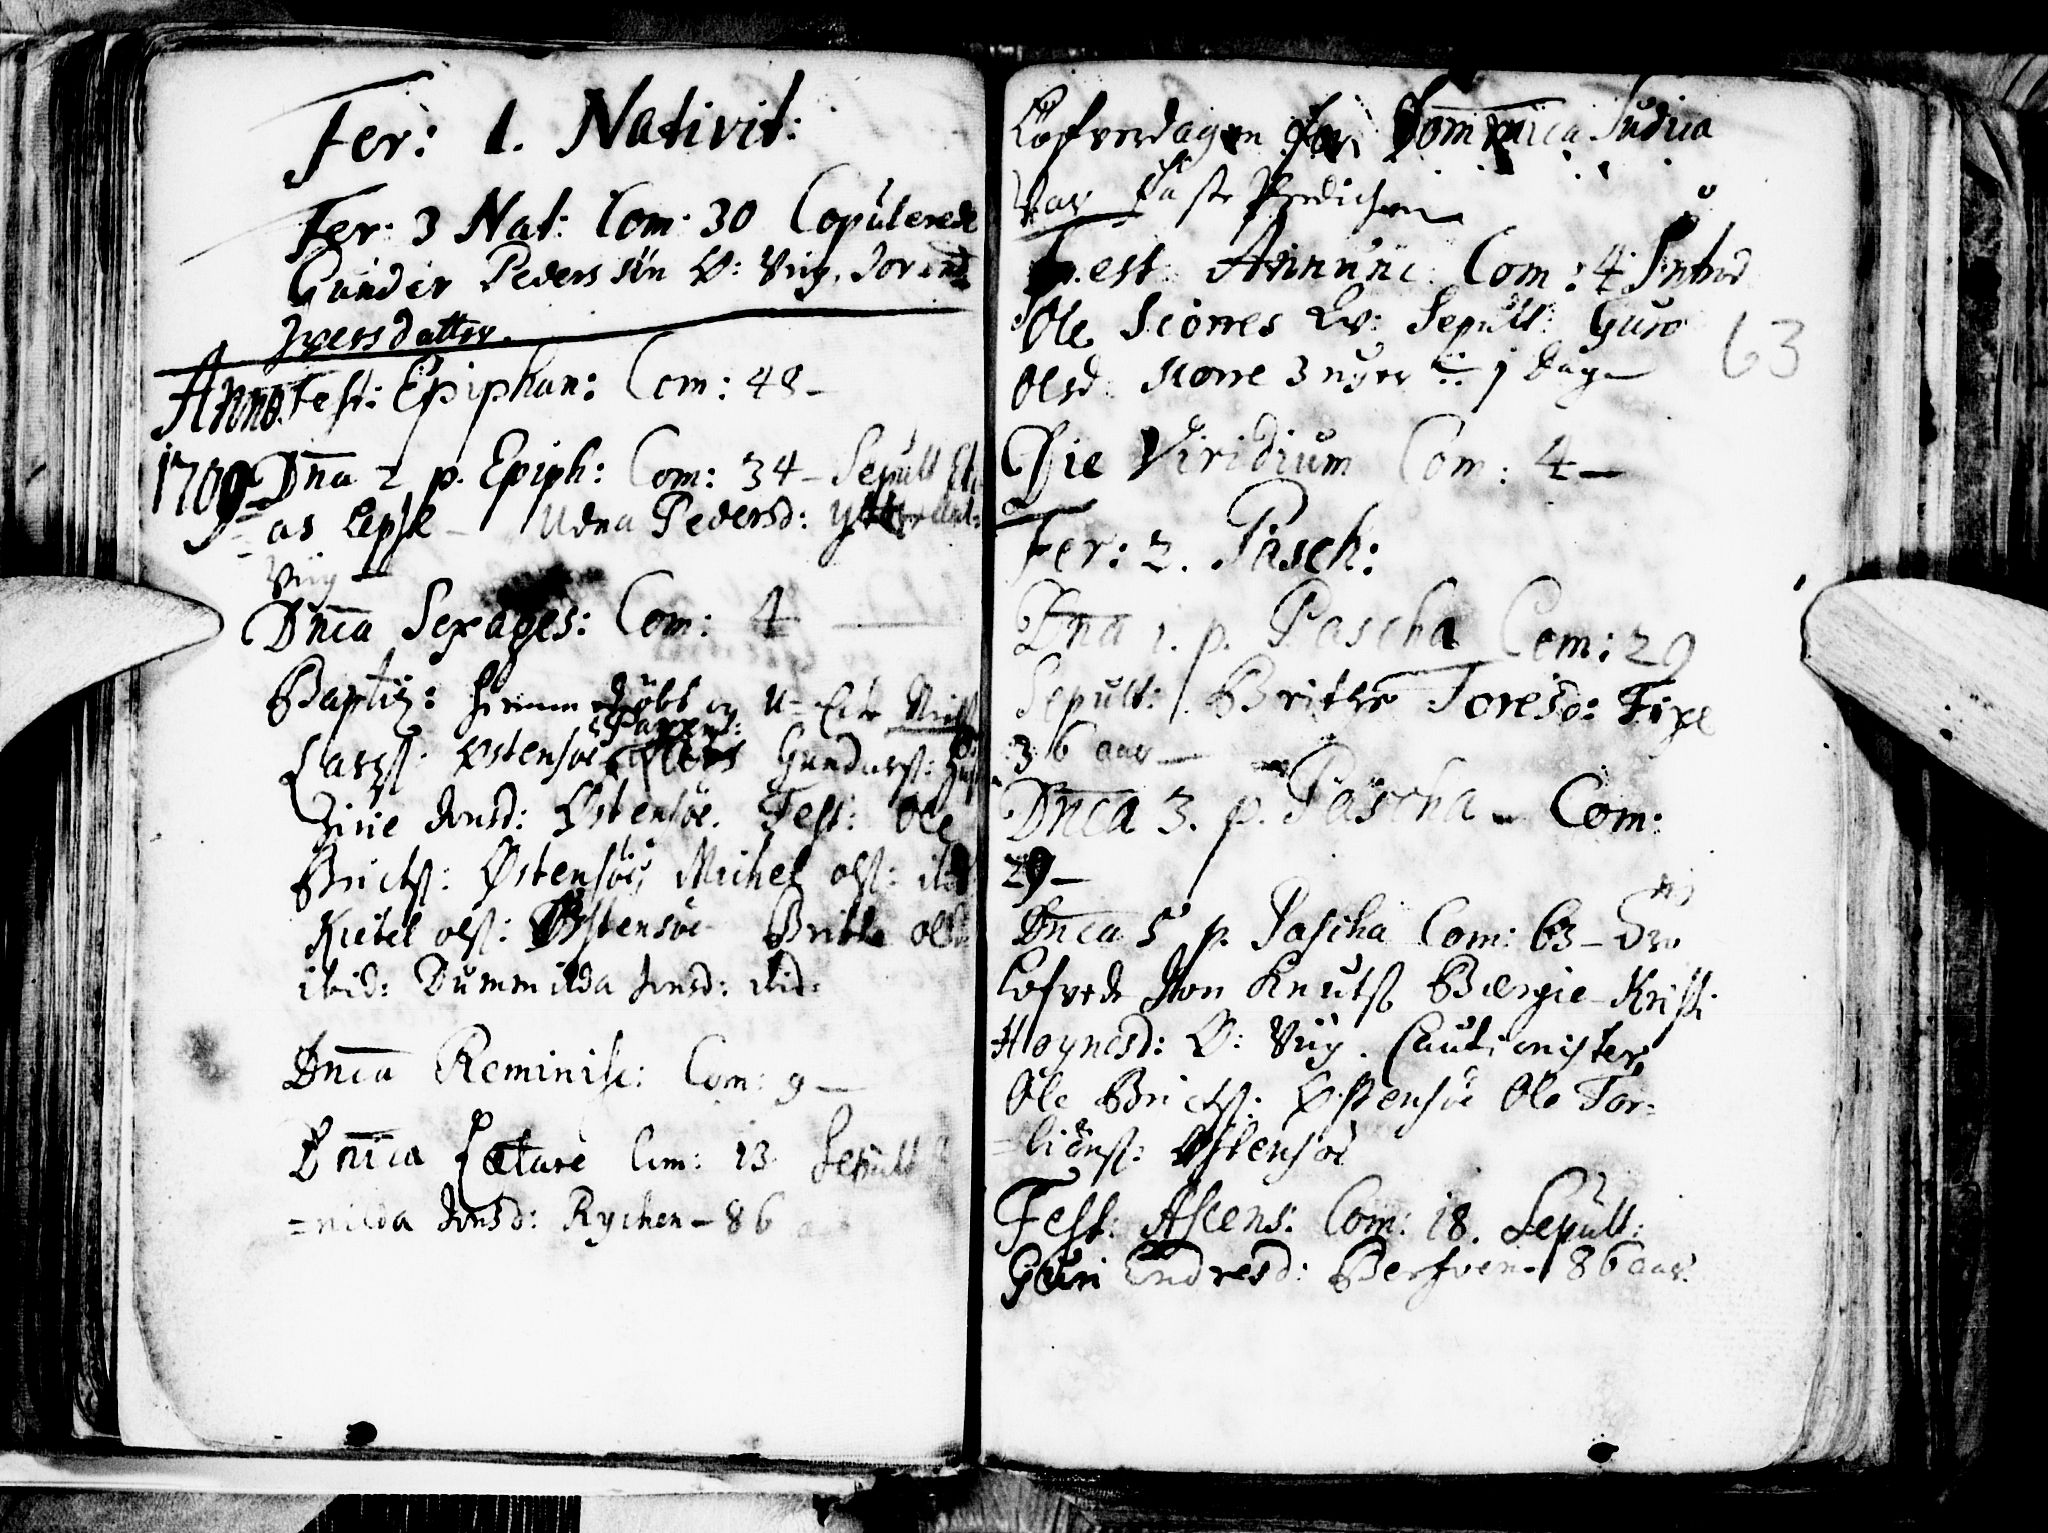 Fer: 1. Nativit:
Fer: 3 Nat: Com: 30 Copulerede
Gunder Pederssøn Ø: Viig. Jorend
Iversdatter.
Anno Fest: Epiphan: Com: 48 –
1709 Dna 2 p. Epiph: Com: 34 – Sepult
as Lepsø – Udna Pedersd:
Viig –
Dnca Sexages: Com: 4
Baptiz: hiemmedøbt og
Larsß: Østensøe Parent: Gundersß:
Zirie Jonsd: Østensøe. Test: Ole
Bricksß: Østensøe Michel olsß: ibid
Kietel olsß: Østensøe Britha olsd:
ibid: Dummilda Jonsd: ibid:
Dnca Reminisc: Com: 9 –
Dnica Lætare Com: 13 Sepult
=nilda Jonsd: Rychen – 86
Løfverdagen for Dominica Judica
Var Faste Prædichen
Fest: Annunc: Com: 4. Introd
Ole Skorres Qv: Sepult: Guro
Olsd Skorre 3 uger 1 dag –
63
Die Viridium Com: 4 –
Fer: 2. Pasch:
Dna 1. p. Pascha Com: 29
Sepult: Brithe Toresd: Fixe
36 aar –
Dnca 3. p. Pascha – Com:
29 –
Dnca 5 p. Pascha Com: 63 – Tro
Lofvede Jon Knutsß Bærgie – Krist:
Høynesd: Ø: Viig. Cautionister
Ole Bricksß: Østensøe Ole Tor=
=biönsß: Østensøe
Fest: Ascens: Com: 18. Sepult:
Guri Endresd: Berfven – 86 aar.